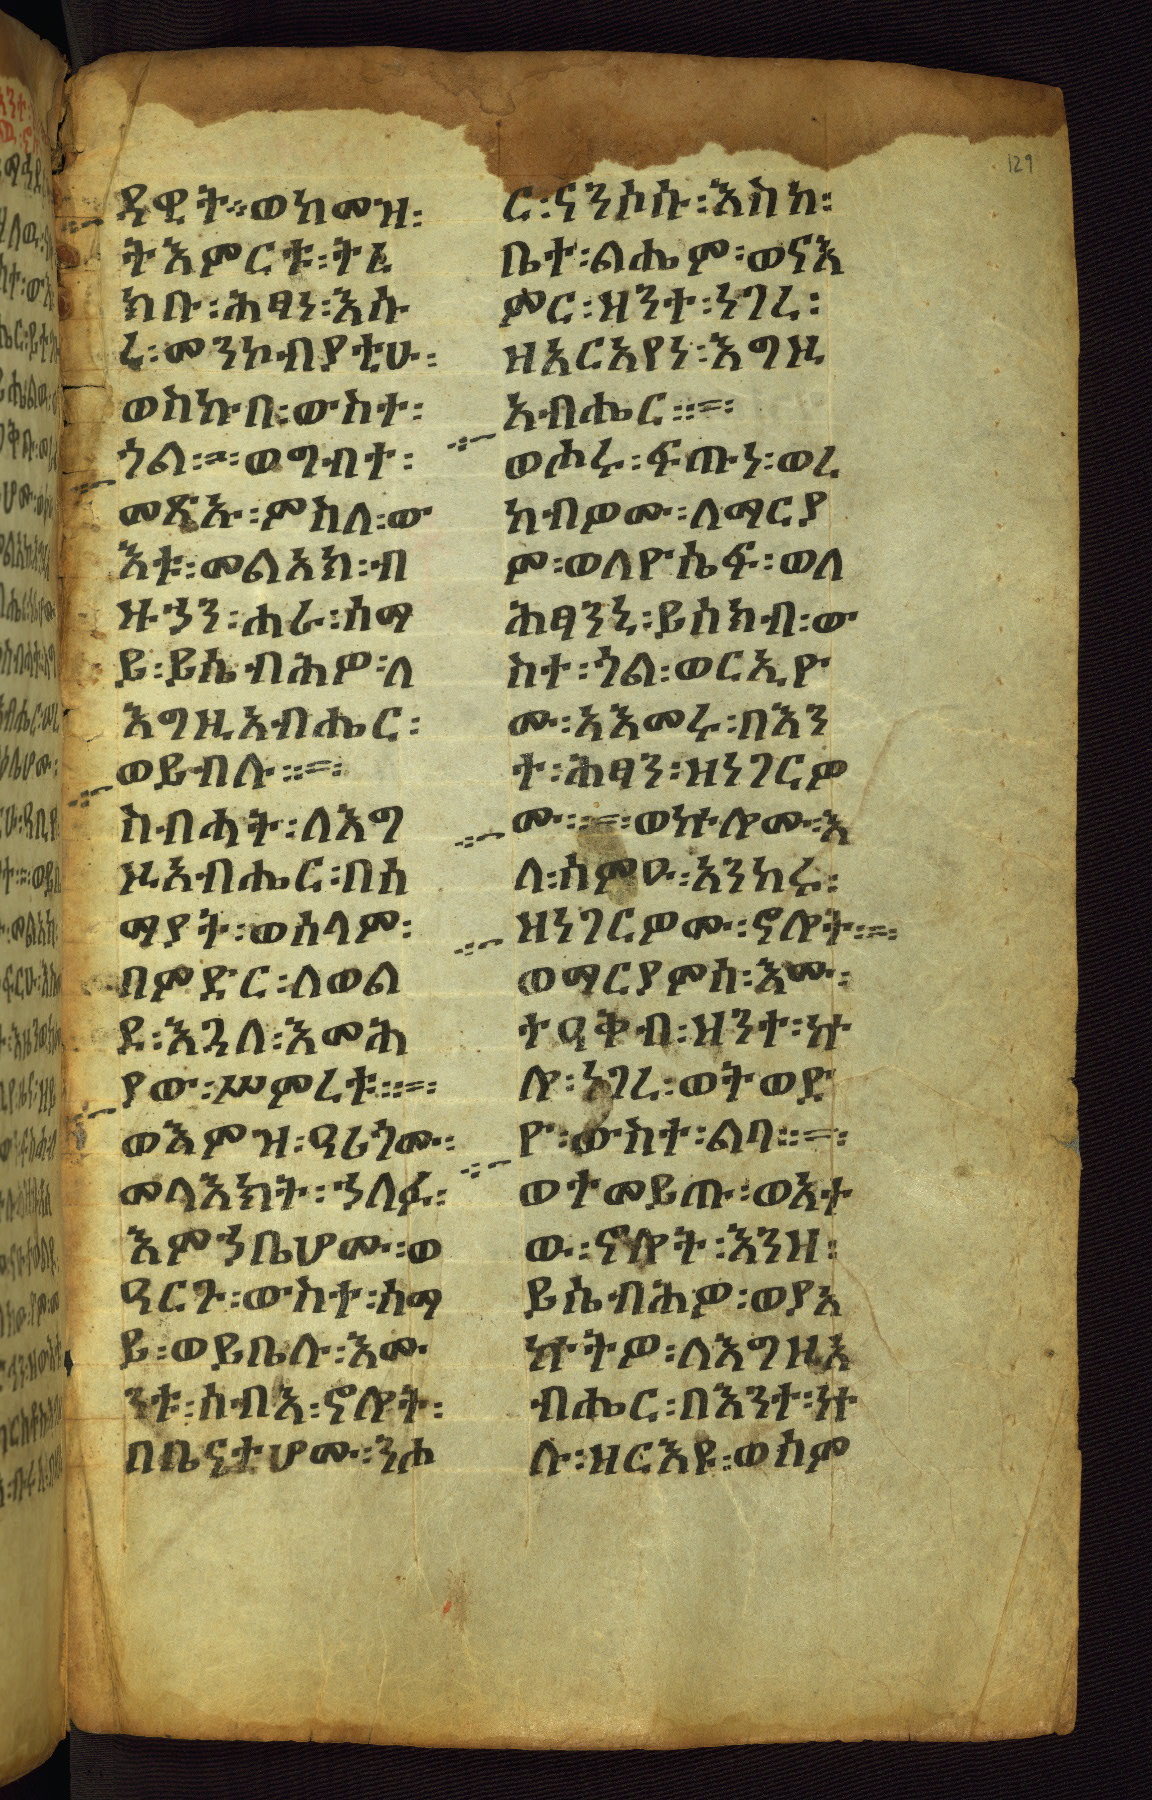 129
ዳዊት፡ወከመዝ፡
ትእምርቱ፡ትረ
ክቡ፡ሕፃነ፡እሱ
ረ፡መንኮብያቲሁ፡
ወስኩበ፡ውስተ፡
ጎል፡፡ወግብተ፡
መጽኡ፡ምስለ፡ው
እቱ፡መልአክ፡ብ
ዙኃን፡ሐራ፡ሰማ
ይ፡ይሴብሕዎ፡ለ
እግዚአብሔር፡
ወይብሉ፡፡
ስብሓት፡ለእግ
ዚአብሔር፡በሰ
ማያት፡ወሰላም፡
በምድር፡ለወል
ደ፡እጓለ፡እመሕ
ያው፡ሥምረቱ፡፡
ወእምዝ፡ዓሪጎሙ፡
መላእክት፡ኃለፉ፡
እምኃቤሆሙ፡ወ
ዓርጉ፡ውስተ፡ሰማ
ይ፡ወይቤሉ፡እሙ
ንቱ፡ሰብእ፡ኖሎት፡
በቤናተሆሙ፡ንሑ
ር፡ናንሶሱ፡እስከ፡
ቤተ፡ልሔም፡ወናእ
ምር፡ዘንተ፡ነገረ፡
ዘአርአየነ፡እግዚ
አብሔር፡፡
ወሖሩ፡ፍጡነ፡ወረ
ከብዎሙ፡ለማርያ
ም፡ወለዮሴፍ፡ወለ
ሕፃንኒ፡ይሰክብ፡ው
ስተ፡ጎል፡ወርኢዮ
ሙ፡አእመሩ፡በእን
ተ፡ሕፃን፡ዘነገርዎ
ሙ፡፡ወኵሎሙ፡እ
ለ፡ሰምዑ፡አንከሩ፡
ዘነገርዎሙ፡ኖሎት፡፡
ወማርያምሰ፡እሙ፡
ተዓቅብ፡ዝንተ፡ኵ
ሎ፡ነገረ፡ወትወድ
ዮ፡ውስተ፡ልባ፡፡
ወተመይጡ፡ወአተ
ው፡ኖሎት፡እንዘ፡
ይሴብሕዎ፡ወያአ
ኵትዎ፡ለእግዚአ
ብሔር፡በእንተ፡ኵ
ሉ፡ዘርእዩ፡ወሰም